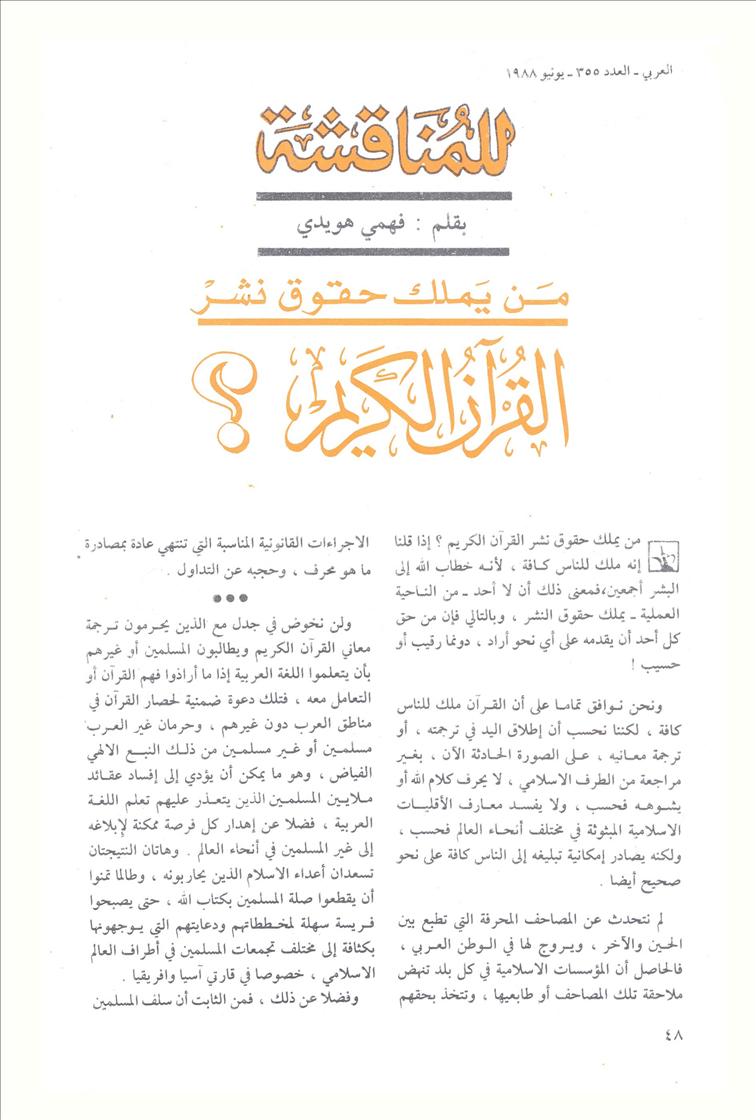 العربي - العدد ٣٥٥ - يونيو ١٩٨٨
للمُناقشة
بقلم : فهمي هويدي
مَـن يَملك حقوق نشرْ
القُرآنُ الكَريم ؟
من يملك حقوق نشر القرآن الكريم ؟ إذا قلنا
إنه ملك للناس كـافة ، لأنـه خطاب الله إلى
البشر أجمعين،فمعنى ذلك أن لا أحد ـ من الناحية
العملية ـ يملك حقوق النشر ، وبالتالي فإن من حق
كل أحد أن يقدمه على أي نحو أراد ، دونما رقيب أو
حسيب !
ونحن نـوافق تمامـا على أن القـرآن ملك للناس
كافة ، لكننا نحسب أن إطلاق اليد في ترجمته ، أو
ترجمة معـانيه ، عـلى الصورة الحـادثة الآن ، بغـير
مراجعة من الطرف الاسلامي ، لا يحرف كلام الله أو
يشـوهـه فحسب ، ولا يفسـد معـارف الأقليـات
الاسلامية المبثوثة في مختلف أنحـاء العالم فحسب ،
ولكنه يصادر إمكانية تبليغه إلى الناس كافة على نحو
صحيح أيضا .
لم نتحدث عن المصاحف المحرفة التي تطبع بين
الحـين والآخر ، ويـروج لهـا في الـوطن العـربي ،
فالحاصل أن المؤسسات الاسلامية في كل بلد تنهض
ملاحقة تلك المصاحف أو طابعيها ، وتتخذ بحقهم
الاجراءات القانونية المناسبة التي تنتهي عادة بمصادرة
ما هو محرف ، وحجبه عن التداول .
●●●
ولن نخوض في جدل مع الذين يحـرمون تـرجمة
معاني القرآن الكريم ويطالبون المسلمين أو غيرهم
بأن يتعلموا اللغة العربية إذا ما أراذوا فهم القرآن أو
التعامل معه ، فتلك دعوة ضمنية لحصار القرآن في
مناطق العرب دون غيرهم ، وحرمان غير العرب
مسلمـين أو غـير مسلمين من ذلـك النبـع الالهي
الفياض ، وهو ما يمكن أن يؤدي إلى إفساد عقـائد
ملايـين المسلمين الذين يتعـذر عليهم تعلم اللغة
العربية ، فضلا عن إهدار كل فرصة ممكنة لإبلاغه
إلى غير المسلمين في أنحاء العالم . وهاتان النتيجتان
تسعدان أعداء الاسلام الذين يحاربونه ، وطالما تمنوا
أن يقطعوا صلة المسلمين بكتاب الله ، حتى يصبحوا
فـريسة سهلة لمخـططاتهم ودعايتهم التي يـوجهونها
بكثافة إلى مختلف تجمعات المسلمين في أطراف العالم
الاسلامي ، خصوصا في قارتي آسيا وافريقيا .
وفضلا عن ذلك ، فمن الثابت أن سلف المسلمين
٤٨